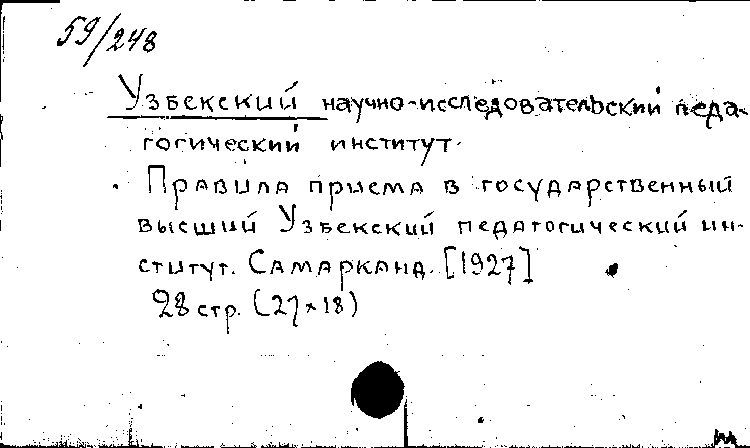 59/248
Узбекский научно-исследовательский педа-
гогический институт.
Правила приема в государственный
высший Узбекский педагогический ин-
ститут. Самарканд. [1927]
28 стр. (27×18)